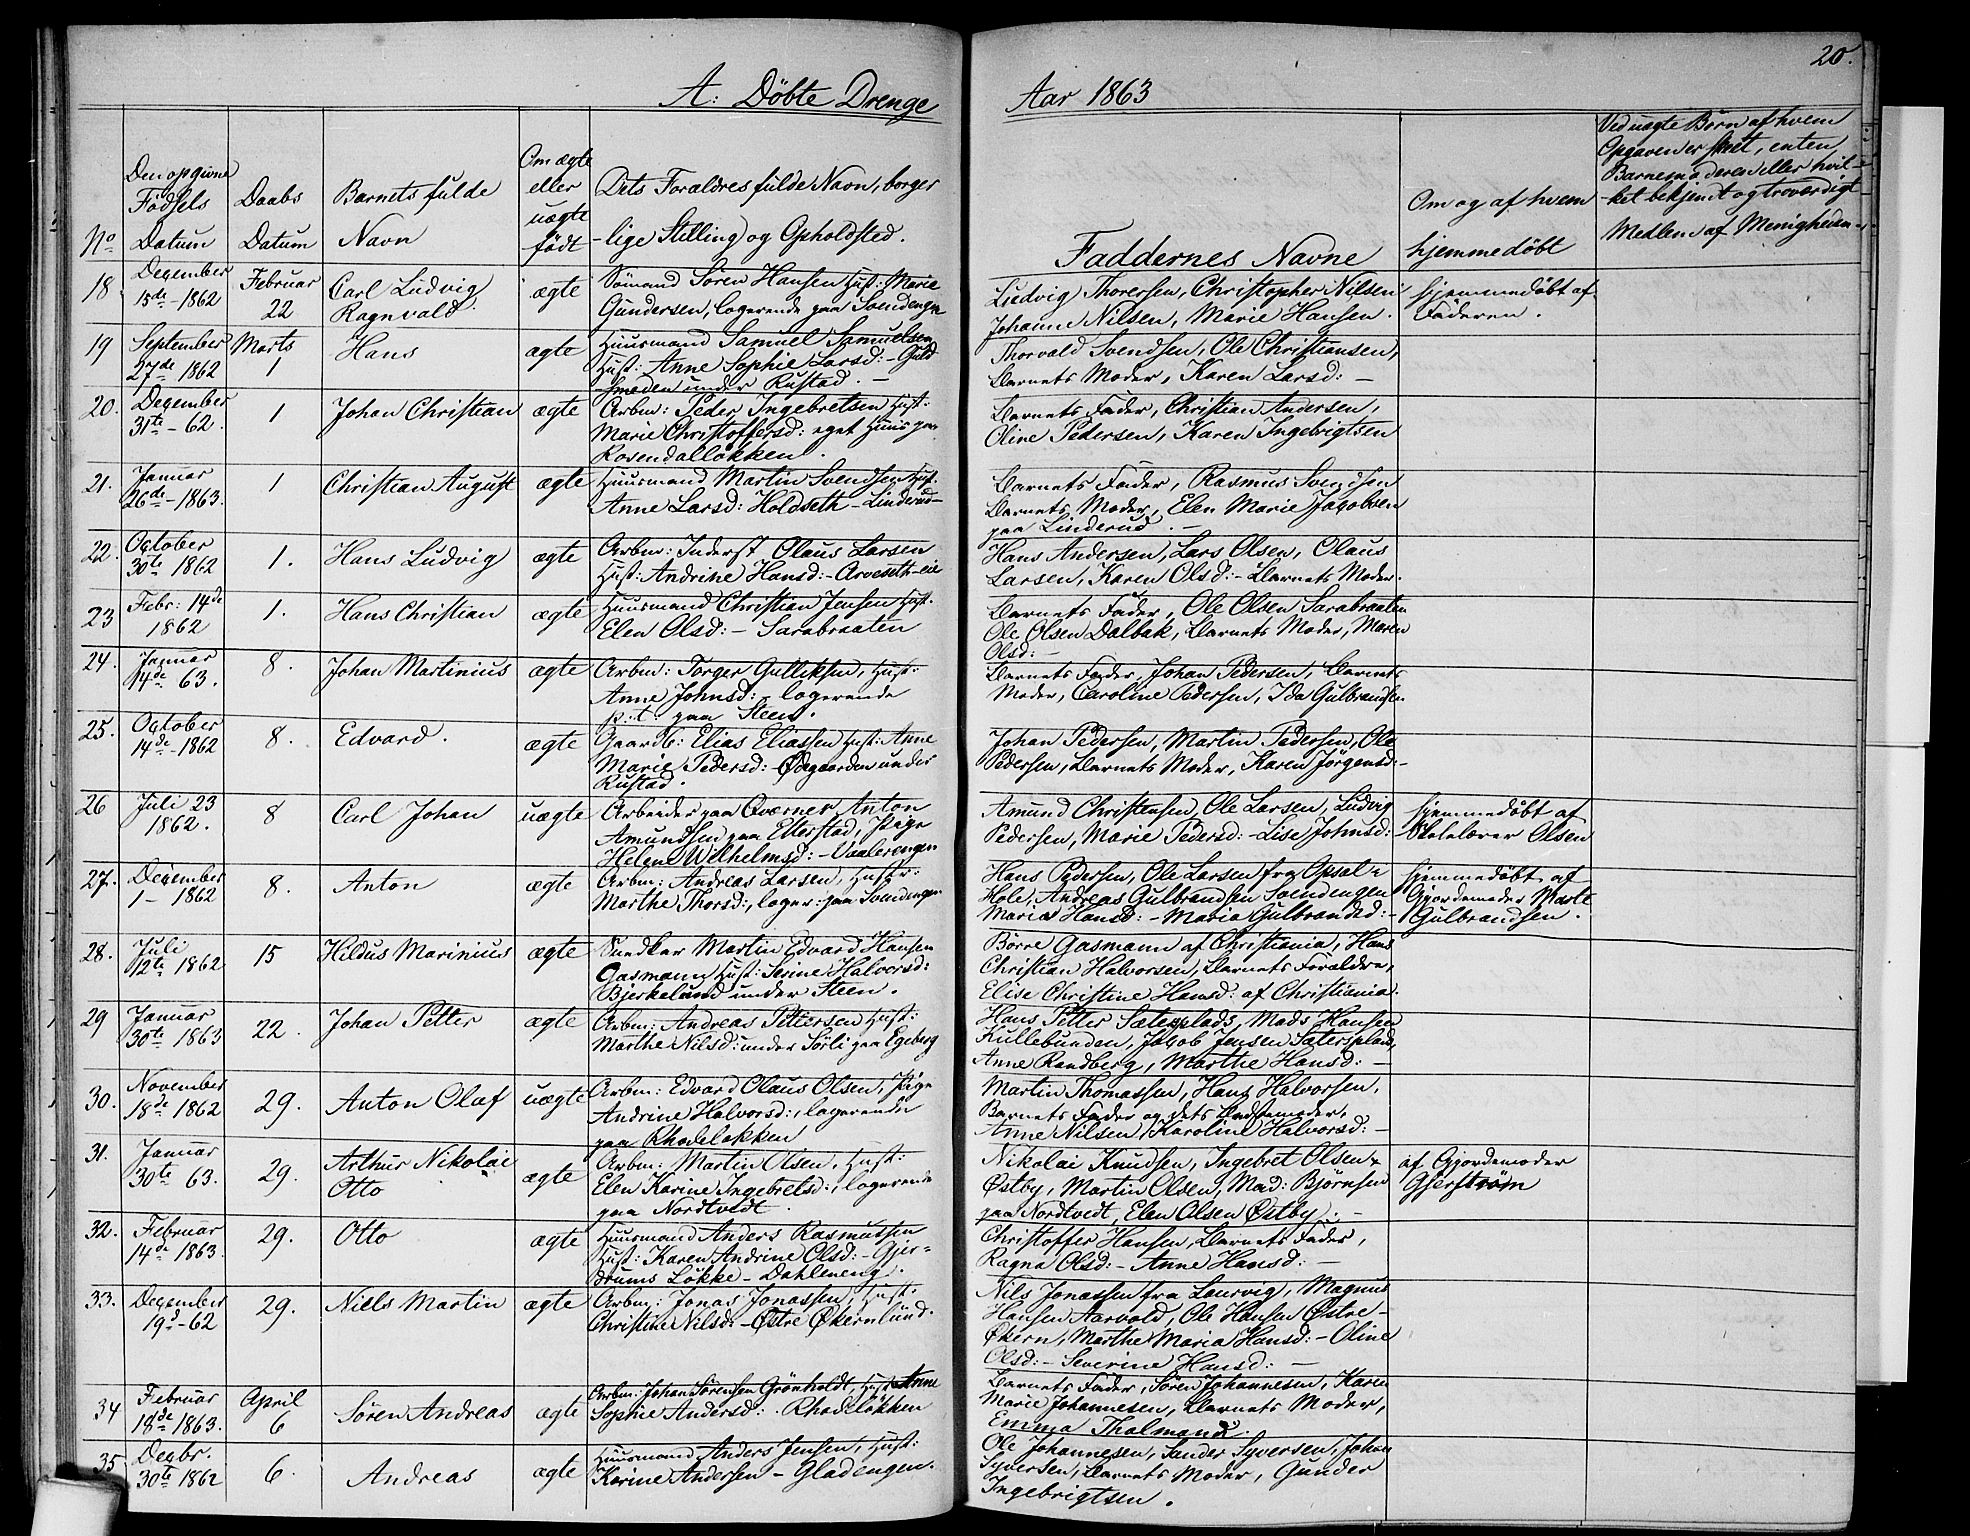 20.
A: Döbte Drenge
Aar 1863
No
Den opgivne Födsels Datum
Daabs Datum
Barnets fulde Navn
Om ægte eller uægte födt
Dets Forældres fulde Navn, borger-lige Stilling og Opholdsted.
Faddernes Navne
Om og af hvem hjemmedöbt
Ved uægte Börn af hvem
Opgaven er skeet, enten
Barnemoderen eller hvil-
ket bekjendt og troværdigt
Medlem af Menigheden
18 December 15de - 1862 Februar 22 Carl Ludvig Ragnvald ægte
Sömand Sören Hansen Hust: Marie
Gundersen, logerende paa Svendengen
Ludvig Thoresen, Christopher Nilsen
Johanne Nilsen, Marie Hansen.
Hjemmedöbt af Faderen.
19 September 27de 1862 Marts 1 Hans ægte
Huusmand Samuel Samuelsen
Hust: Anne Sophie Larsd: - Guld
smeden under Rustad. -
Thorvald Svendsen, Ole Christiansen,
Barnets Moder, Karen Larsd: -
20. December 31te - 62. 1 Johan Christian ægte
Arbm: Peder Ingebretsen Hust:
Marie Christoffersd: eget Huus paa
Rosendalløkken.
Barnets Fader, Christian Andersen,
Oline Pedersen, Karen Ingebrigtsen
21. Januar 26de - 1863. 1 Christian August ægte
Huusmand Martin Svendsen Hust.
Anne Larsd: Holdseth - Linderud -
Barnets Fader, Rasmus Svendsen
Barnets Moder, Elen Marie Jacobsen
paa Linderud. -
22. October 30te 1862 1. Hans Ludvig ægte
Arbm: Inderst Olaus Larsen
Hust: Andrine Hansd: - Arveseth-eie
Hans Andersen, Lars Olsen, Olaus
Larsen, Karen Olsd: - Barnets Moder.
23 Febr: 14de 1862 1. Hans Christian ægte
Huusmand Christian Jensen Hust.
Elen Olsd: - Sarabraaten
Barnets Fader, Ole Olsen Sarabraaten
Ole Olsen Dalbak, Barnets Moder, Maren
Olsd: -
24. Januar 14de 63. 8. Johan Martinius ægte
Arbm: Torger Gulliksen, Hust:
Anne Johnsd: - logerende
p: t: paa Steen.
Barnets Fader, Johan Pedersen, Barnets
Moder, Caroline Pedersen, Ida Gulbrandsen
25. October 14de - 1862 8. Edvard. ægte
Gaardb: Elias Eliassen Hust: Anne
Marie Pedersd: - Ödegaarden under
Rustad.
Johan Pedersen, Martin Pedersen, Ole
Pedersen, Barnets Moder, Karen Jörgensd: -
26 Juli 23 1862. 8 Carl Johan uægte
Arbeider paa Qværner Anton
Amundsen paa Etterstad, Pige
Helene Wilhelmsd: - Vaalerengen
Amund Christensen, Ole Larsen, Ludvig
Pedersen, Marie Pedersd: - Lise Johnsd:
Hjemmedöbt af
Skolelærer Olsen
27. December 1 - 1862 8. Anton ægte
Arbm: Andreas Larsen, Hustr.
Marthe Thorsd:, loger: paa Svendengen
Hans Pedersen, Ole Larsen fra Opsal
Hole, Andreas Gulbrandsen Svendengen
Maria Hansd: - Maria Gulbrandsd: -
Hjemmedöbt af
Gjordemoder Marte
Gulbrandsen.
28. Juli 12te 1862 15 Hildus Marinius ægte
Snedker Martin Edvard Hansen
Gasmann Hust: Serine Halvorsd:
Bjerkelund under Steen.
Börre Gasmann af Christiania, Hans
Christian Halvorsen, Barnets Forældre,
Elise Christine Hansd: af Christiania.
29 Januar 30te 1863 22. Johan Petter ægte
Arbm: Andreas Pettersen Hust:
Marthe Nilsd: under Sörli paa Egeberg
Hans Petter Sætersplads, Mads Hansen
Kullebunden, Jacob Jensen Sætersplads
Anne Randberg, Marthe Hansd: -
30. November 18de 1862 29. Anton Olaf uægte
Arbm: Edvard Olaus Olsen, Pige
Andrine Halvorsd:, logerende
paa Rhodeløkken
Martin Thomassen, Hans Halvorsen,
Barnets Fader og dets Bedstemoder,
Anne Nilsen, Karoline Halvorsd: -
31. Januar 30te 63. 29. Arthur Nikolai Otto ægte
Arbm: Martin Olsen, Hust:
Elen Karine Ingebretsd:, logerende
paa Nordtvedt.
Nikolai Knudsen, Ingebret Olsen
Østby, Martin Olsen, Mad: Björnsen
paa Nordtvedt, Elen Olsen Østby. -
af Gjordemoder
Gjerström
32. Februar 14de 1863. 29. Otto ægte
Huusmand Anders Rasmussen
Hust: Karen Andrine Olsd: - Gjer-
drums Løkke - Dahleneng.
Christoffer Hansen, Barnets Fader,
Ragna Olsd: - Anne Hansd: -
33. December 19d - 62 29. Niels Martin ægte
Arbm: Jonas Jonassen, Hust:
Christine Nilsd: - Østre Økernlund.
Nils Jonassen fra Laurvig, Magnus
Hansen Aarvold, Ole Hansen Østre-
Økern, Marthe Maria Hansd: - Oline
Olsd: - Severine Hansd: -
34 Februar 18de 1863. April 6 Sören Andreas ægte
Arbm: Johan Sörensen Grönholdt, Hust: Anne
Sophie Andersd: Rhodeløkken
Barnets Fader, Sören Johannesen, Karen
Marie Johannesen, Barnets Moder,
Emma Thalmand.
35 Decbr. 30te 1862 6. Andreas ægte
Huusmand Anders Jensen, Hust:
Karine Andersen - Gladengen.
Ole Johannesen, Sander Syversen, Johan
Syversen, Barnets Moder, Gunder
Ingebrigtsen.